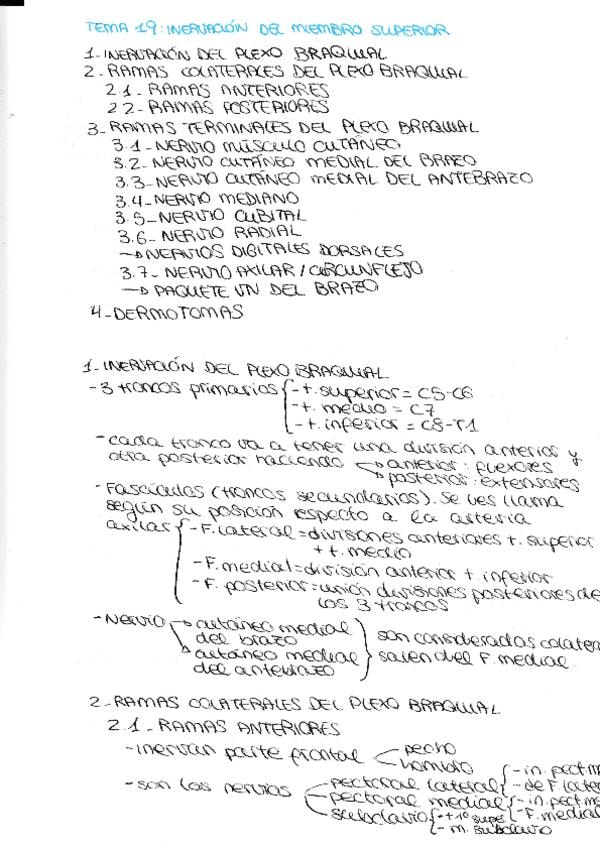 TEMA 19: INERVACIÓN DEL MIEMBRO SUPERIOR
1- INERVACIÓN DEL PLEXO BRAQUIAL
2- RAMAS COLATERALES DEL PLEXO BRAQUIAL
2.1- RAMAS ANTERIORES
2.2- RAMAS POSTERIORES
3- RAMAS TERMINALES DEL PLEXO BRAQUIAL
3.1- NERVIO MÚSCULO CUTÁNEO
3.2- NERVIO CUTÁNEO MEDIAL DEL BRAZO
3.3- NERVIO CUTÁNEO MEDIAL DEL ANTEBRAZO
3.4- NERVIO MEDIANO
3.5- NERVIO CUBITAL
3.6- NERVIO RADIAL
→ NERVIOS DIGITALES DORSALES
3.7- NERVIO AXILAR / CIRCUNFLEJO
→ PAQUETE VN DEL BRAZO
4- DERMOTOMAS
1- INERVACIÓN DEL PLEXO BRAQUIAL
- 3 troncos primarios { - t. superior = C5-C6
- t. medio = C7
- t. inferior = C8-T1
- cada tronco va a tener una división anterior y
otra posterior haciendo → anterior: flexores
→ posterior: extensores
- Fascículos (troncos secundarios). Se les llama
según su posición respecto a la arteria
axilar { - F. lateral = divisiones anteriores t. superior
+ t. medio
- F. medial = división anterior t. inferior
- F. posterior = unión divisiones posteriores de
los 3 troncos
- Nervio → cutáneo medial del brazo
→ cutáneo medial del antebrazo } son considerados colater
salen del F. medial
2- RAMAS COLATERALES DEL PLEXO BRAQUIAL
2.1- RAMAS ANTERIORES
- inervan parte frontal < pecho
hombro
- son los nervios < pectoral lateral { - in. pect m
- de F. later
pectoral medial { - in. pect me
- F. medial
subclavio { - t 1º supe
- m. subclavio